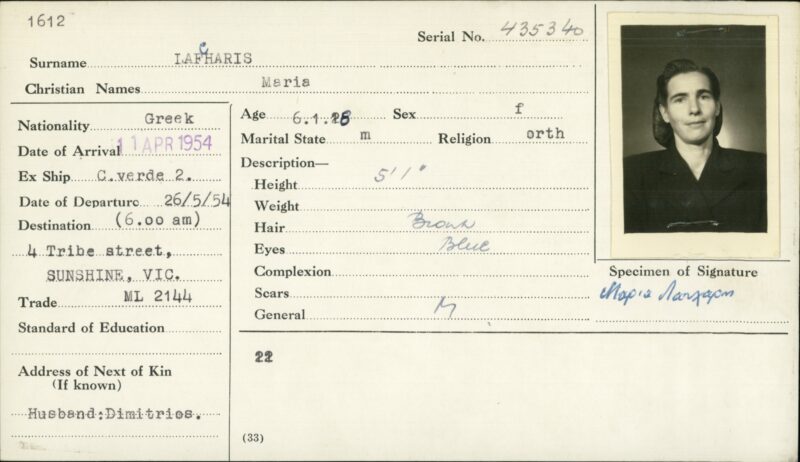 1612
Serial No. 435340
Surname LAFCHARIS
Christian Names Maria
Nationality Greek
Date of Arrival 11 APR 1954
Ex Ship C.verde 2.
Date of Departure 26/5/54
Destination (6.00 am)
4 Tribe street,
SUNSHINE, VIC.
Trade ML 2144
Standard of Education
Address of Next of Kin
(If known)
Husband:Dimitrios.
Age 6.1.18 Sex f
Marital State m Religion orth
Description—
Height 5'1"
Weight
Hair Brown
Eyes Blue
Complexion
Scars
General M
22
(33)
Specimen of Signature
Μαρια